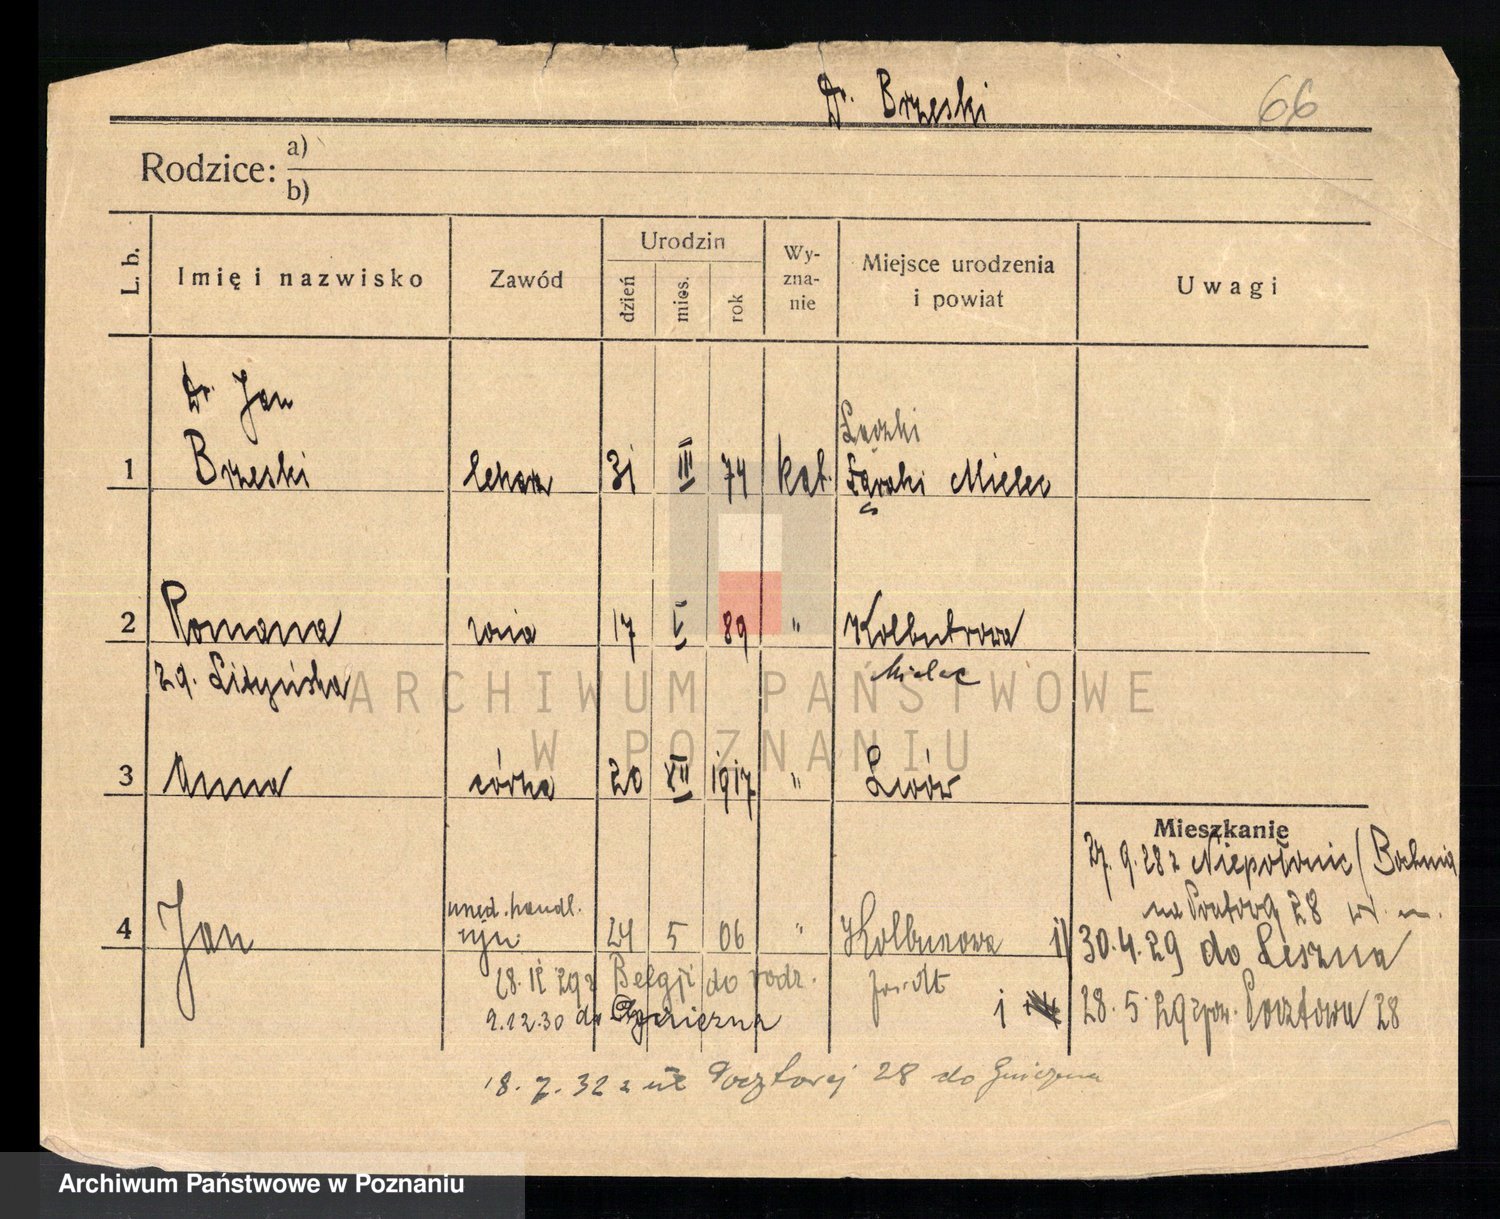 Dr. Brzeski
66
Rodzice: a)
b)
L. b.
Imię i nazwisko
Zawód
Urodzin
dzień
mies.
rok
Wy-
zna-
nie
Miejsce urodzenia
i powiat
Uwagi
Dr. Jan
1 Brzeski lekarz 31 III 74 kat. Mielec
2 Romana żona 17 V 89 " Kolbuszowa
Mielec
3 Anna córka 20 XII 1917 " Lwów
Mieszkanie
27. 9. 28 z Niepołomic (Bochnia
na Pocztową 28 w. m.
4 Jan 24 5 06 " Kolbuszowa
1) 30. 4. 29 do Leszna
28. 5. 29 z pow. Pocztowa 28
28. II 29 z Belgji do rodz.
9. 12. 30 do Gniezna
18. 7. 32 z ul Pocztowej 28 do Gniezna
ARCHIWUM PAŃSTWOWE
W POZNANIU
Archiwum Państwowe w Poznaniu